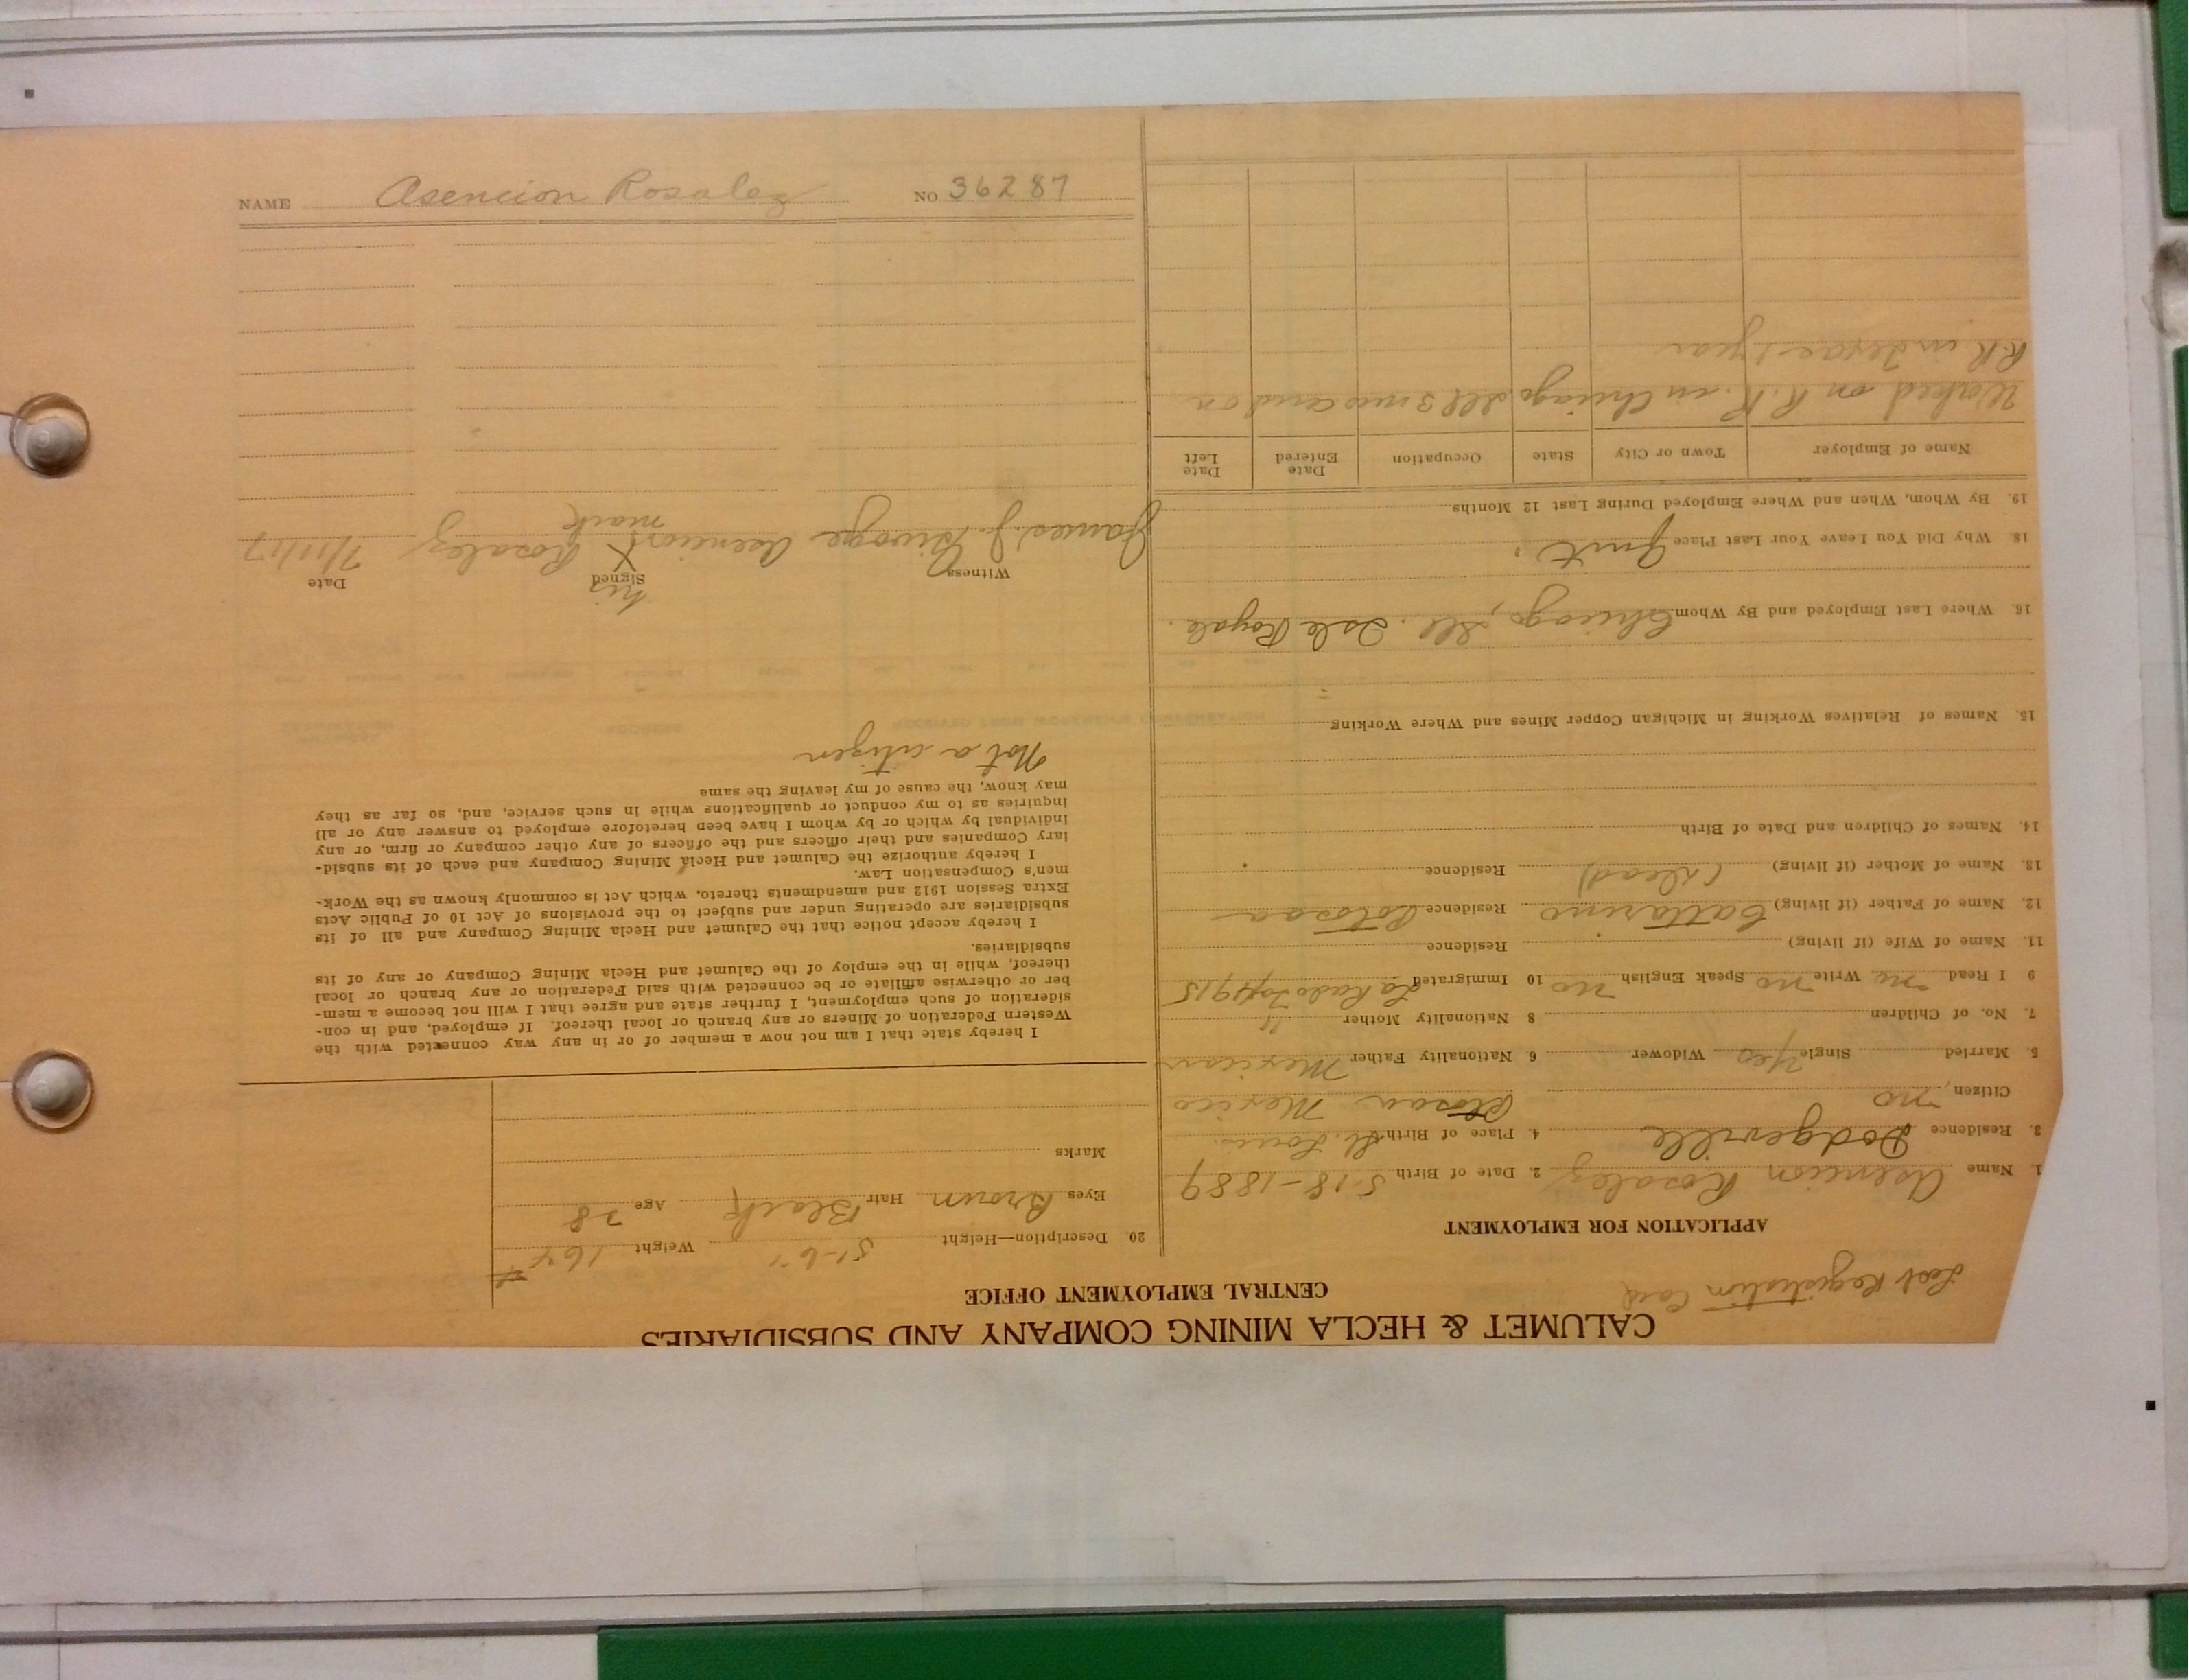 CALUMET & HECLA MINING COMPANY AND SUBSIDIARIES
CENTRAL EMPLOYMENT OFFICE
Lost Registration Card
APPLICATION FOR EMPLOYMENT
1. Name Asencion Rosalez 2. Date of Birth 5-18-1889
3. Residence Dodgeville 4. Place of Birth St. Louis
Citizen, no Mexico
5. Married Single yes Widower 6. Nationality Father Mexican
7. No. of Children 8 Nationality Mother "
9 I Read no Write no Speak English no 10 Immigrated 1915
11. Name of Wife (if living) Residence
12. Name of Father (if living) Cattarino Residence
13. Name of Mother (if living) (Dead) Residence
14. Names of Children and Date of Birth
15. Names of Relatives Working in Michigan Copper Mines and Where Working
16. Where Last Employed and By Whom Chicago, Ill. Isle Royale.
18. Why Did You Leave Your Last Place Quit.
19. By Whom, When and Where Employed During Last 12 Months
Name of Employer Town or City State Occupation Date Entered Date Left
Worked on R.R. in Chicago Ill 3 mo and on
R.R. in Texas 1 year
20. Description—Height 5'-6" Weight 164 #
Eyes Brown Hair Black Age 28
Marks
I hereby state that I am not now a member of or in any way connected with the
Western Federation of Miners or any branch or local thereof. If employed, and in con-
sideration of such employment, I further state and agree that I will not become a mem-
ber or otherwise affiliate or be connected with said Federation or any branch or local
thereof, while in the employ of the Calumet and Hecla Mining Company or any of its
subsidiaries.
I hereby accept notice that the Calumet and Hecla Mining Company and all of its
subsidiaries are operating under and subject to the provisions of Act 10 of Public Acts
Extra Session 1912 and amendments thereto, which Act is commonly known as the Work-
men's Compensation Law.
I hereby authorize the Calumet and Hecla Mining Company and each of its subsid-
iary Companies and their officers and the officers of any other company or firm, or any
individual by which or by whom I have been heretofore employed to answer any or all
inquiries as to my conduct or qualifications while in such service, and, so far as they
may know, the cause of my leaving the same
Not a citizen
Witness his Signed Date
James J. Asencion X Rosalez 7/11/17
mark
NAME Asencion Rosalez NO 36287